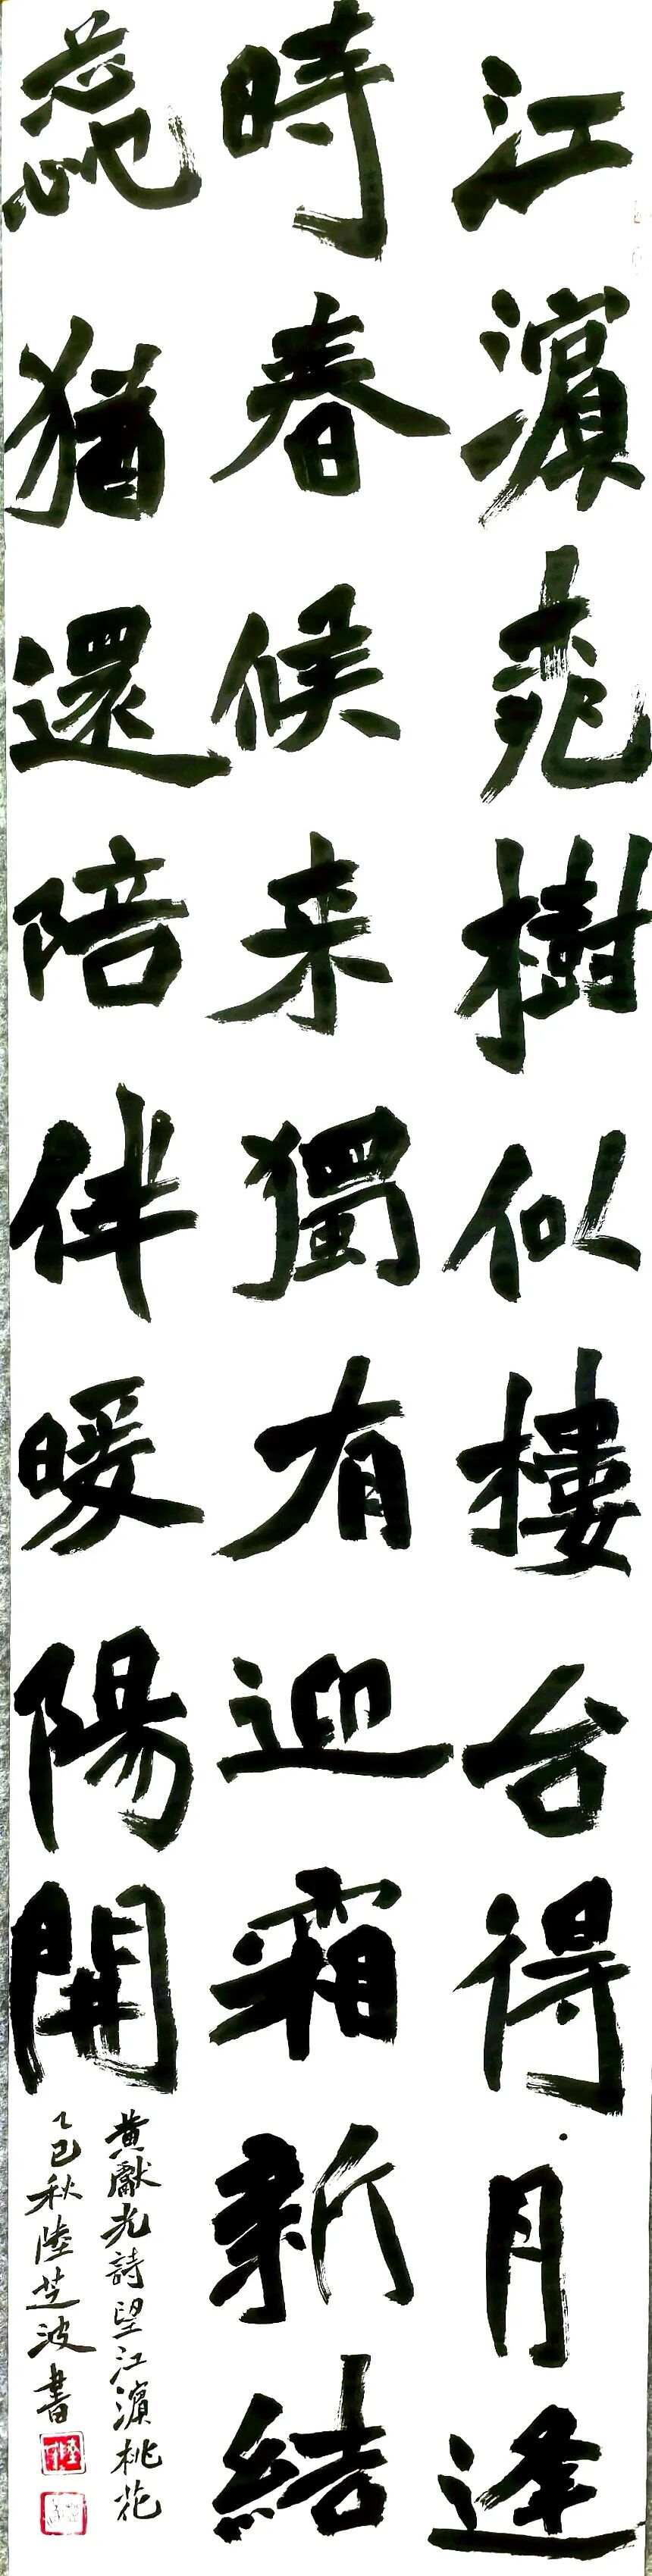 江濱桃樹似樓台得月逢
時春候来獨有迎霜新結
蕊猶還陪伴暖陽開
黄獻光詩望江濱桃花
乙巳秋陸芝波書